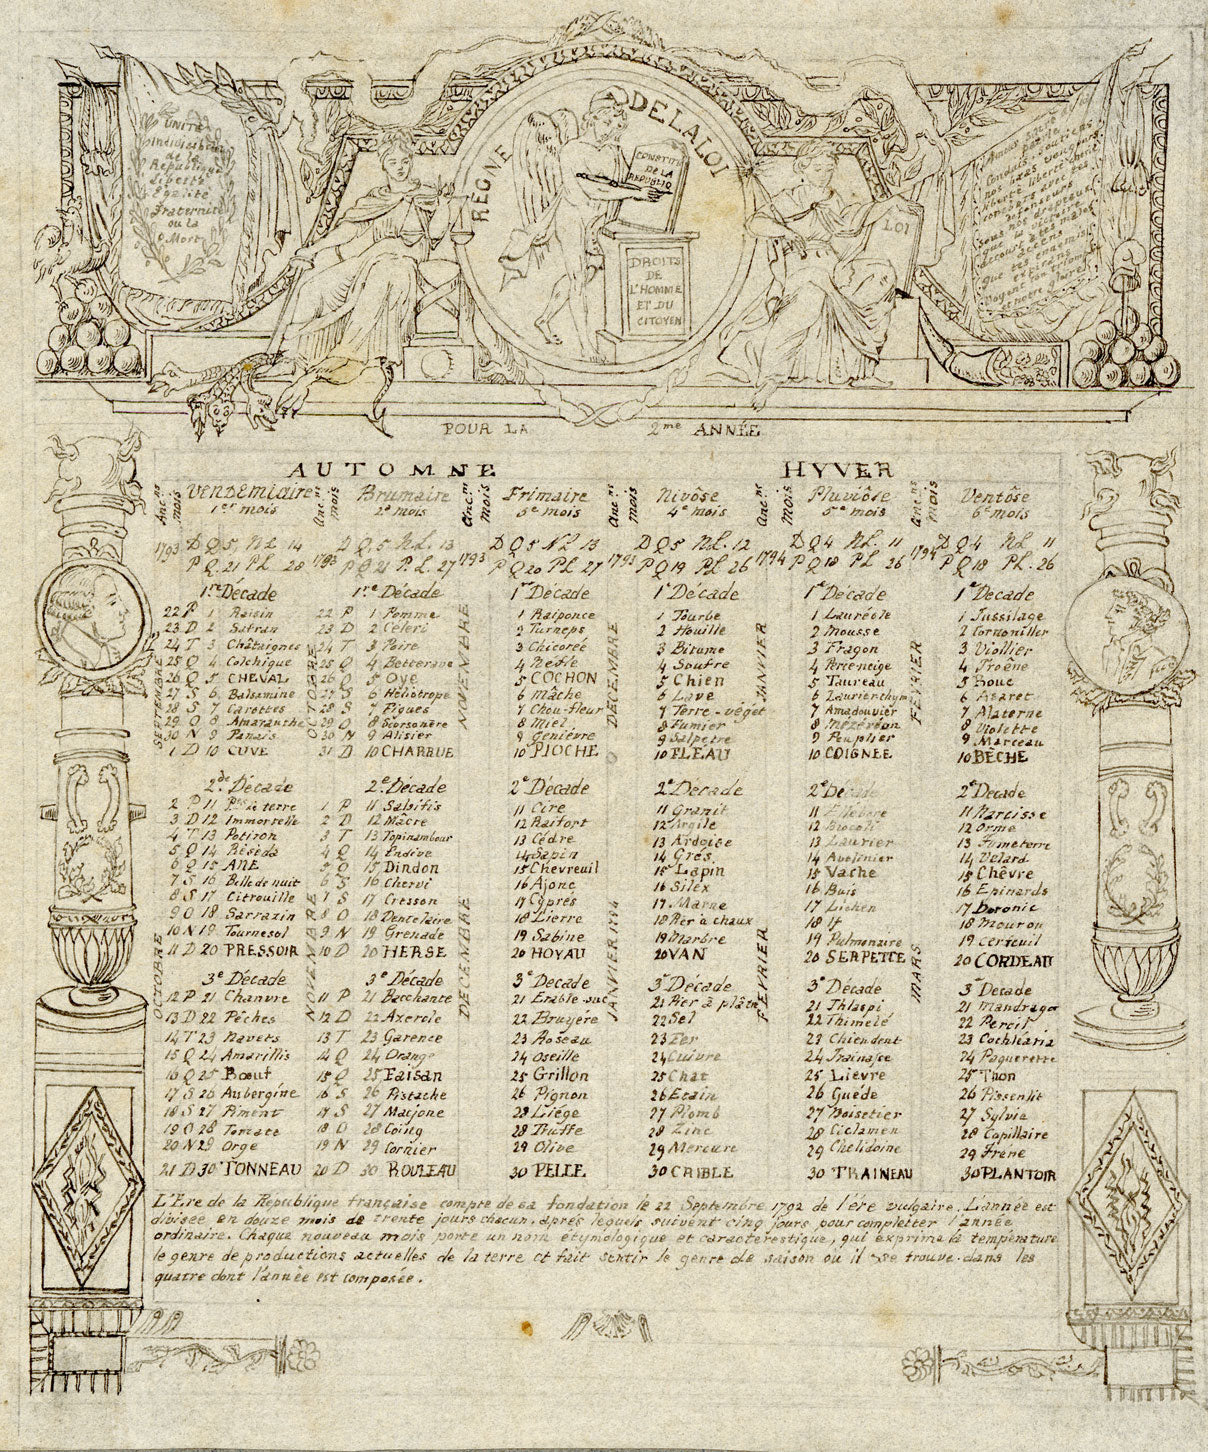 UNITÉ
Indivisibilité
de la
République
Liberté
Egalité
Fraternité
ou la
Mort
REGNE DE LA LOI
CONSTITU
DE LA
REPUBLIQ
DROITS
DE
L'HOMME
ET DU
CITOYEN
LOI
Amour sacré de la
patrie
Conduis soutiens
nos bras vengeurs
Liberté liberté chérie
combats avec
tes défenseurs
sous nos drapeaux
que la victoire
accoure à tes mâles
accens
que tes ennemis
expirans
voyent ton triomphe
et notre gloire
POUR LA 2me ANNÉE
AUTOMNE HYVER
Ancns mois Vendemiaire Ancns mois Brumaire Ancns mois Frimaire Ancns mois Nivôse Ancns mois Pluviôse Ancns mois Ventôse
1er mois 2e mois 3e mois 4e mois 5e mois 6e mois
1793 D Q 5, NL 14 1793 D Q, 5 NL. 13 1793 D Q 5 NL 13 1793 D Q 5 NL. 12 1794 D Q 4 NL. 11 1794 D Q 4 NL 11
P Q. 21 PL 28 P Q 21 P.L. 27 P Q 20 PL 27 P Q 19 PL 26 P Q 18 PL 26 P Q 18 PL. 26
1re Décade 1re Décade 1e Décade 1e Décade 1e Décade 1e Décade
22 P 1 Raisin 22 P 1 Pomme 1 Raiponce 1 Tourbe 1 Lauréole 1 Tussilage
23 D 2 Safran 23 D 2 Céleri 2 Turneps 2 Houille 2 Mousse 2 Cornouiller
24 T 3 Châtaignes 24 T 3 Poire 3 Chicorée 3 Bitume 3 Fragon 3 Viollier
25 Q 4 Colchique 25 Q 4 Betterave 4 Nèfle 4 Soufre 4 Perceneige 4 Troêne
26 Q 5 CHEVAL 26 Q 5 Oye 5 COCHON 5 Chien 5 Taureau 5 Bouc
27 S 6 Balsamine 27 S 6 Héliotrope 6 Mâche 6 Lave 6 Laurier thym 6 Asaret
28 S 7 Carottes 28 S 7 Figues 7 Chou-fleur 7 Terre-végét 7 Amadouvier 7 Alaterne
29 O 8 Amaranthe 29 O 8 Scorsonère 8 Miel 8 Fumier 8 Mézéréon 8 Violette
30 N 9 Panais 30 N 9 Alisier 9 Genièvre 9 Salpetre 9 Peuplier 9 Marceau
1 D 10 CUVE 31 D 10 CHARRUE 10 PIOCHE 10 FLEAU 10 COIGNEE 10 BÊCHE
SEPTEMBRE OCTOBRE NOVEMBRE DECEMBRE JANVIER FÉVRIER
2de Décade 2e Décade 2e Décade 2e Décade 2e Décade 2e Décade
2 P 11 Pme de terre 1 P 11 Salsifis 11 Cire 11 Granit 11 Ellébore 11 Narcisse
3 D 12 Immortelle 2 D 12 Mâcre 12 Raifort 12 Argile 12 Brocoli 12 Orme
4 T 13 Potiron 3 T 13 Topinambour 13 Cèdre 13 Ardoise 13 Laurier 13 Fumeterre
5 Q 14 Réséda 4 Q 14 Endive 14 Sapin 14 Grès 14 Avelinier 14 Vélard
6 Q 15 ANE 5 Q 15 Dindon 15 Chevreuil 15 Lapin 15 Vache 15 Chêvre
7 S 16 Belle de nuit 6 S 16 Chervi 16 Ajonc 16 Silex 16 Buis 16 Epinards
8 S 17 Citrouille 7 S 17 Cresson 17 Cyprès 17 Marne 17 Lichen 17 Doronic
9 O 18 Sarrazin 8 O 18 Dentelaire 18 Lierre 18 Pier à chaux 18 If 18 Mouron
10 N 19 Tournesol 9 N 19 Grenade 19 Sabine 19 Marbre 19 Pulmonaire 19 Cerfeuil
11 D 20 PRESSOIR 10 D 20 HERSE 20 HOYAU 20 VAN 20 SERPETTE 20 CORDEAU
OCTOBRE NOVEMBRE DÉCEMBRE JANVIER 1794 FÉVRIER MARS
3e Décade 3e Décade 3e Décade 3e Décade 3e Décade 3e Décade
12 P 21 Chanvre 11 P 21 Bacchante 21 Erable suc 21 Pier à plâtre 21 Thlaspi 21 Mandragor
13 D 22 Pêches 12 D 22 Azerole 22 Bruyère 22 Sel 22 Thimelé 22 Persil
14 T 23 Navets 13 T 23 Garence 23 Roseau 23 Fer 23 Chiendent 23 Cochléaria
15 Q 24 Amarillis 14 Q 24 Orange 24 Oseille 24 Cuivre 24 Trainasse 24 Paquerette
16 Q 25 Bœuf 15 Q 25 Faisan 25 Grillon 25 Chat 25 Lièvre 25 Thon
17 S 26 Aubergine 16 S 26 Pistache 26 Pignon 26 Etain 26 Guéde 26 Pissenlit
18 S 27 Piment 17 S 27 Macjonc 27 Liége 27 Plomb 27 Noisetier 27 Sylvie
19 O 28 Tomate 18 O 28 Coing 28 Truffe 28 Zinc 28 Ciclamen 28 Capillaire
20 N 29 Orge 19 N 29 Cormier 29 Olive 29 Mercure 29 Chelidoine 29 Frêne
21 D 30 TONNEAU 20 D 30 ROULEAU 30 PELLE 30 CRIBLE 30 TRAINEAU 30 PLANTOIR
L'Ere de la République française compte de sa fondation le 22 Septembre 1792 de l'ére vulgaire. L'année est
divisée en douze mois de trente jours chacun, après lequels suivent cinq jours pour completter l'année
ordinaire. Chaque nouveau mois porte un nom étymologique et caracterestique, qui exprime la température
le genre de productions actuelles de la terre et fait sentir le genre de saison où il se trouve dans les
quatre dont l'année est composée.